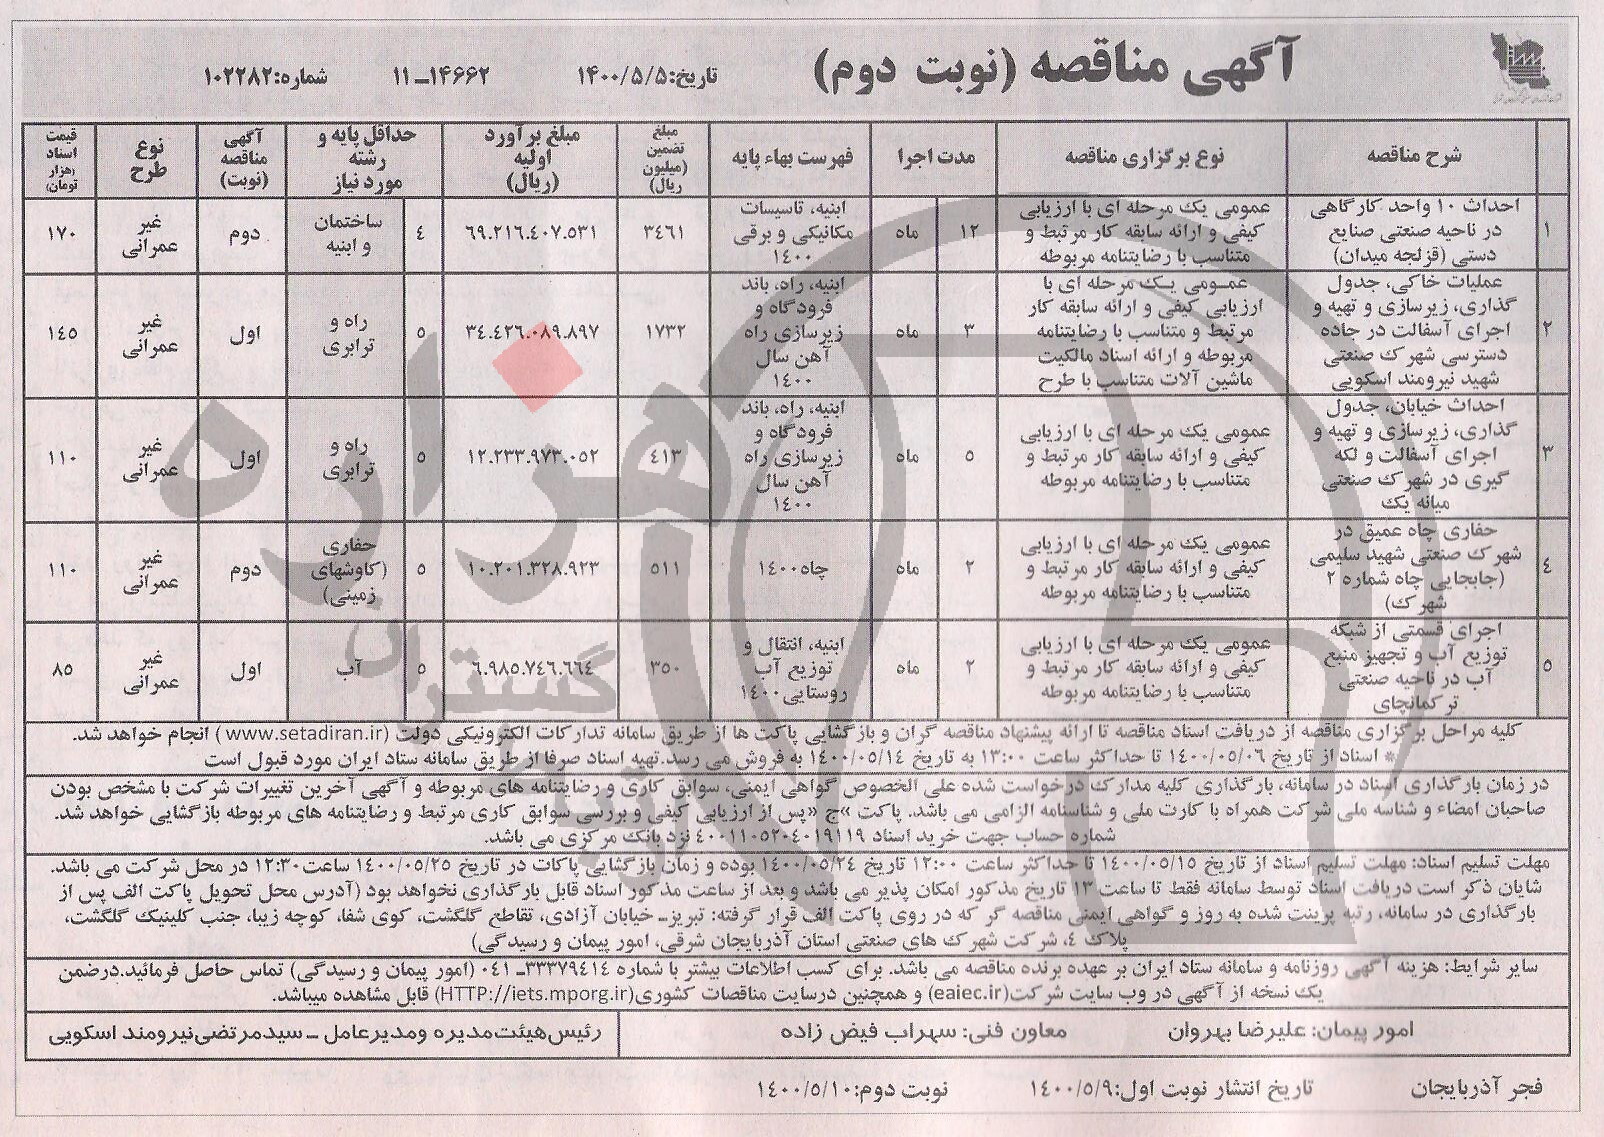 آگهی مناقصه (نوبت دوم)
تاریخ:۱۴۰۰/۵/۵
۱۱-۱۴۶۶۲
شماره:۱۰۲۲۸۲
شرح مناقصه
نوع برگزاری مناقصه
مدت اجرا
فهرست بهاء پایه
مبلغ تضمین (میلیون ریال)
مبلغ برآورد اولیه (ریال)
حداقل پایه و رشته مورد نیاز
آگهی مناقصه (نوبت)
نوع طرح
قیمت اسناد (هزار تومان)
۱
احداث ۱۰ واحد کارگاهی
در ناحیه صنعتی صنایع
دستی (قزلجه میدان)
عمومی یک مرحله ای با ارزیابی
کیفی و ارائه سابقه کار مرتبط و
متناسب با رضایتنامه مربوطه
۱۲
ماه
ابنیه، تاسیسات
مکانیکی و برقی
۱۴۰۰
۳۴۶۱
۶۹.۲۱۶.۴۰۷.۵۳۱
۴
ساختمان
و ابنیه
دوم
غیر
عمرانی
۱۷۰
۲
عملیات خاکی، جدول
گذاری، زیرسازی و تهیه و
اجرای آسفالت در جاده
دسترسی شهرک صنعتی
شهید نیرومند اسکویی
عمومی یک مرحله ای با
ارزیابی کیفی و ارائه سابقه کار
مرتبط و متناسب با رضایتنامه
مربوطه و ارائه اسناد مالکیت
ماشین آلات متناسب با طرح
۳
ماه
ابنیه، راه، باند
فرودگاه و
زیرسازی راه
آهن سال
۱۴۰۰
۱۷۳۲
۳۴.۴۲۶.۰۸۹.۸۹۷
۵
راه و
ترابری
اول
غیر
عمرانی
۱۴۵
۳
احداث خیابان، جدول
گذاری، زیرسازی و تهیه و
اجرای آسفالت و لکه
گیری در شهرک صنعتی
میانه یک
عمومی یک مرحله ای با ارزیابی
کیفی و ارائه سابقه کار مرتبط و
متناسب با رضایتنامه مربوطه
۵
ماه
ابنیه، راه، باند
فرودگاه و
زیرسازی راه
آهن سال
۱۴۰۰
۴۱۳
۱۲.۲۳۳.۹۷۳.۰۵۲
۵
راه و
ترابری
اول
غیر
عمرانی
۱۱۰
۴
حفاری چاه عمیق در
شهرک صنعتی شهید سلیمی
(جابجایی چاه شماره ۲
شهرک)
عمومی یک مرحله ای با ارزیابی
کیفی و ارائه سابقه کار مرتبط و
متناسب با رضایتنامه مربوطه
۲
ماه
چاه ۱۴۰۰
۵۱۱
۱۰.۲۰۱.۳۲۸.۹۲۳
۵
حفاری
(کاوشهای
زمینی)
دوم
غیر
عمرانی
۱۱۰
۵
اجرای قسمتی از شبکه
توزیع آب و تجهیز منبع
آب در ناحیه صنعتی
ترکمانچای
عمومی یک مرحله ای با ارزیابی
کیفی و ارائه سابقه کار مرتبط و
متناسب با رضایتنامه مربوطه
۲
ماه
ابنیه، انتقال و
توزیع آب
روستایی۱۴۰۰
۳۵۰
۶.۹۸۵.۷۴۶.۶۶۴
۵
آب
اول
غیر
عمرانی
۸۵
کلیه مراحل برگزاری مناقصه از دریافت اسناد مناقصه تا ارائه پیشنهاد مناقصه گران و بازگشایی پاکت ها از طریق سامانه تدارکات الکترونیکی دولت (www.setadiran.ir) انجام خواهد شد.
* اسناد از تاریخ ۱۴۰۰/۰۵/۰۶ تا حداکثر ساعت ۱۳:۰۰ به تاریخ ۱۴۰۰/۰۵/۱۴ به فروش می رسد.تهیه اسناد صرفا از طریق سامانه ستاد ایران مورد قبول است
در زمان بارگذاری اسناد در سامانه، بارگذاری کلیه مدارک درخواست شده علی الخصوص گواهی ایمنی، سوابق کاری و رضایتنامه های مربوطه و آگهی آخرین تغییرات شرکت با مشخص بودن
صاحبان امضاء و شناسه ملی شرکت همراه با کارت ملی و شناسنامه الزامی می باشد. پاکت »ج «پس از ارزیابی کیفی و بررسی سوابق کاری مرتبط و رضایتنامه های مربوطه بازگشایی خواهد شد.
شماره حساب جهت خرید اسناد ۴۰۰۱۱۰۵۲۰۴۰۱۹۱۱۹ نزد بانک مرکزی می باشد.
مهلت تسلیم اسناد: مهلت تسلیم اسناد از تاریخ ۱۴۰۰/۰۵/۱۵ تا حداکثر ساعت ۱۲:۰۰ تاریخ ۱۴۰۰/۰۵/۲۴ بوده و زمان بازگشایی پاکات در تاریخ ۱۴۰۰/۰۵/۲۵ ساعت۱۲:۳۰ در محل شرکت می باشد.
شایان ذکر است دریافت اسناد توسط سامانه فقط تا ساعت ۱۳ تاریخ مذکور امکان پذیر می باشد و بعد از ساعت مذکور اسناد قابل بارگذاری نخواهد بود (آدرس محل تحویل پاکت الف پس از
بارگذاری در سامانه، رتبه پرینت شده به روز و گواهی ایمنی مناقصه گر که در روی پاکت الف قرار گرفته: تبریز- خیابان آزادی، تقاطع گلگشت، کوی شفا، کوچه زیبا، جنب کلینیک گلگشت،
پلاک ۴، شرکت شهرک های صنعتی استان آذربایجان شرقی، امور پیمان و رسیدگی)
سایر شرایط: هزینه آگهی روزنامه و سامانه ستاد ایران بر عهده برنده مناقصه می باشد. برای کسب اطلاعات بیشتر با شماره ۳۳۳۷۹۴۱۴-۰۴۱ (امور پیمان و رسیدگی) تماس حاصل فرمائید.درضمن
یک نسخه از آگهی در وب سایت شرکت(eaiec.ir) و همچنین درسایت مناقصات کشوری(HTTP://iets.mporg.ir) قابل مشاهده میباشد.
امور پیمان: علیرضا بهروان
معاون فنی: سهراب فیض زاده
رئیس هیئت مدیره ومدیرعامل - سیدمرتضی نیرومند اسکویی
فجر آذربایجان
تاریخ انتشار نوبت اول:۱۴۰۰/۵/۹
نوبت دوم:۱۴۰۰/۵/۱۰
هزاره
گستران